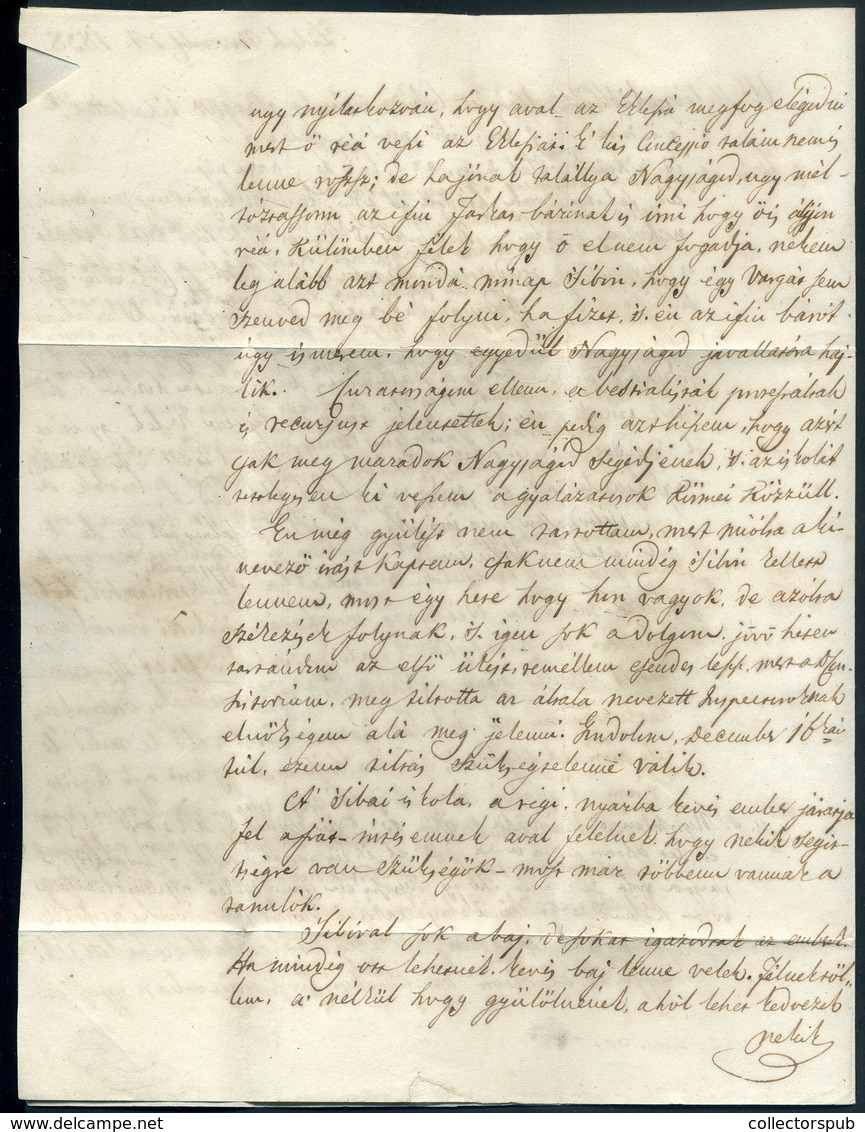 ugy nyilatkozván, hogy aval az Ekl'sia megfog elégedni
mert ő reá veszi az Eklesiát. E' kis Concessio talám nem is
lenne rossz; de ha jónak talállya Nagyságod, ugy mél-
tóztassonn az ifiu Farkas bárónak is irni hogy ő is álljon
reá, Különben félek hogy ő el nem fogadja, nekem
leg alább azt mondá minap Sibón, hogy égy Vargát sem
szenved meg bé folyni, ha fizet, 's én az ifiu bárót
úgy ismerem, hogy egyedűl Nagyságod javallatára haj-
lik. Curatorságom ellenn, a protestáltak
és recurjust jelentettek; én pedig azt hiszem, hogy azért
csak meg maradok Nagyságod segédjének, 's az iskolát
tettlegesen ki veszem a gyalázatosok Körmei Közzűll.
En még gyűlést nem tartottam, mert miólta a ki-
nevező irást kaptam, csaknem mindég Sibón kellett
lennem, most égy hete hogy hon vagyok, de azólta
folynak, 's igen sok a dolgom. jövő héten
tartándom az elsö ülést, reméllem csendes lessz, mert a Con-
sistorium, meg tiltotta az általa nevezett Inspectoroknak
elnökségem alá meg jelenni. Gondolom, December 16kái-
túl, ezenn tiltás szűkségtelenné válik.
A' Sibai iskola, a régi. nyárba kevés ember járatja
fel a fiát – 's ennek aval felelnek hogy nekik segit-
ségre van szűkségök – most már többenn vannak a
tanulók.
Sibóval sok a baj, de sokat igazodtak az emberek.
Ha mindég ott lehetnék, kevés baj lenne velek. Félnek töl-
lem, a' nélkűl hogy gyűlölnének, ahól lehet kedvezek
nekik
collectorspub
www.delcampe.net